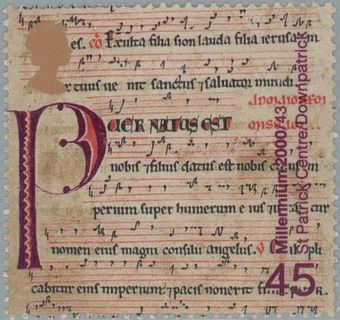 es. Exulta filia sion lauda filia ierusalem
tuus ue nit sanctus ⁊saluator mundi
PUER NATUS EST
nobis ⁊filius datus est nobis
perium super humerum e ius
nomen eius magni consilii angelus.
eius imperium ⁊pacis nonerit
Millennium 2000/43
St Patrick Centre/Downpatrick
45